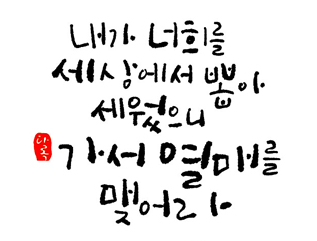 내가 너희를
세상에서 뽑아
세우었으니
가서 열매를
맺어라